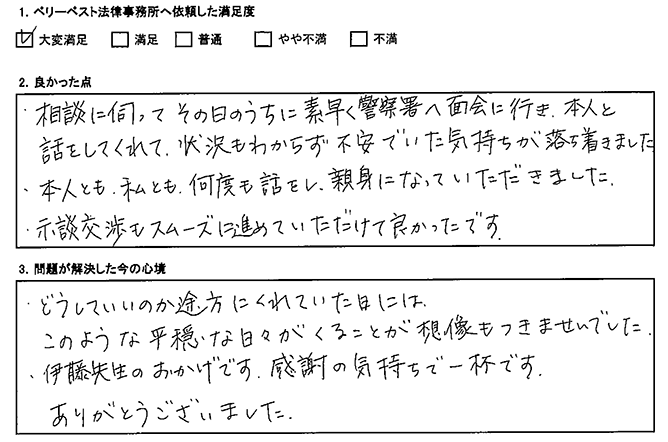 1. ベリーベスト法律事務所へ依頼した満足度
☑ 大変満足 □ 満足 □ 普通 □ やや不満 □ 不満
2. 良かった点
・相談に伺って その日のうちに 素早く警察署へ面会に行き、本人と
話をしてくれて、状況もわからず不安でいた気持ちが落ち着きました
・本人とも、私とも、何度も話をし、親身になっていただきました。
・示談交渉もスムーズに進めていただけて良かったです。
3. 問題が解決した今の心境
・どうしていいのか途方にくれていた日には、
このような平穏な日々がくることが想像もつきませんでした。
・伊藤先生のおかげです。感謝の気持ちで一杯です。
ありがとうございました。